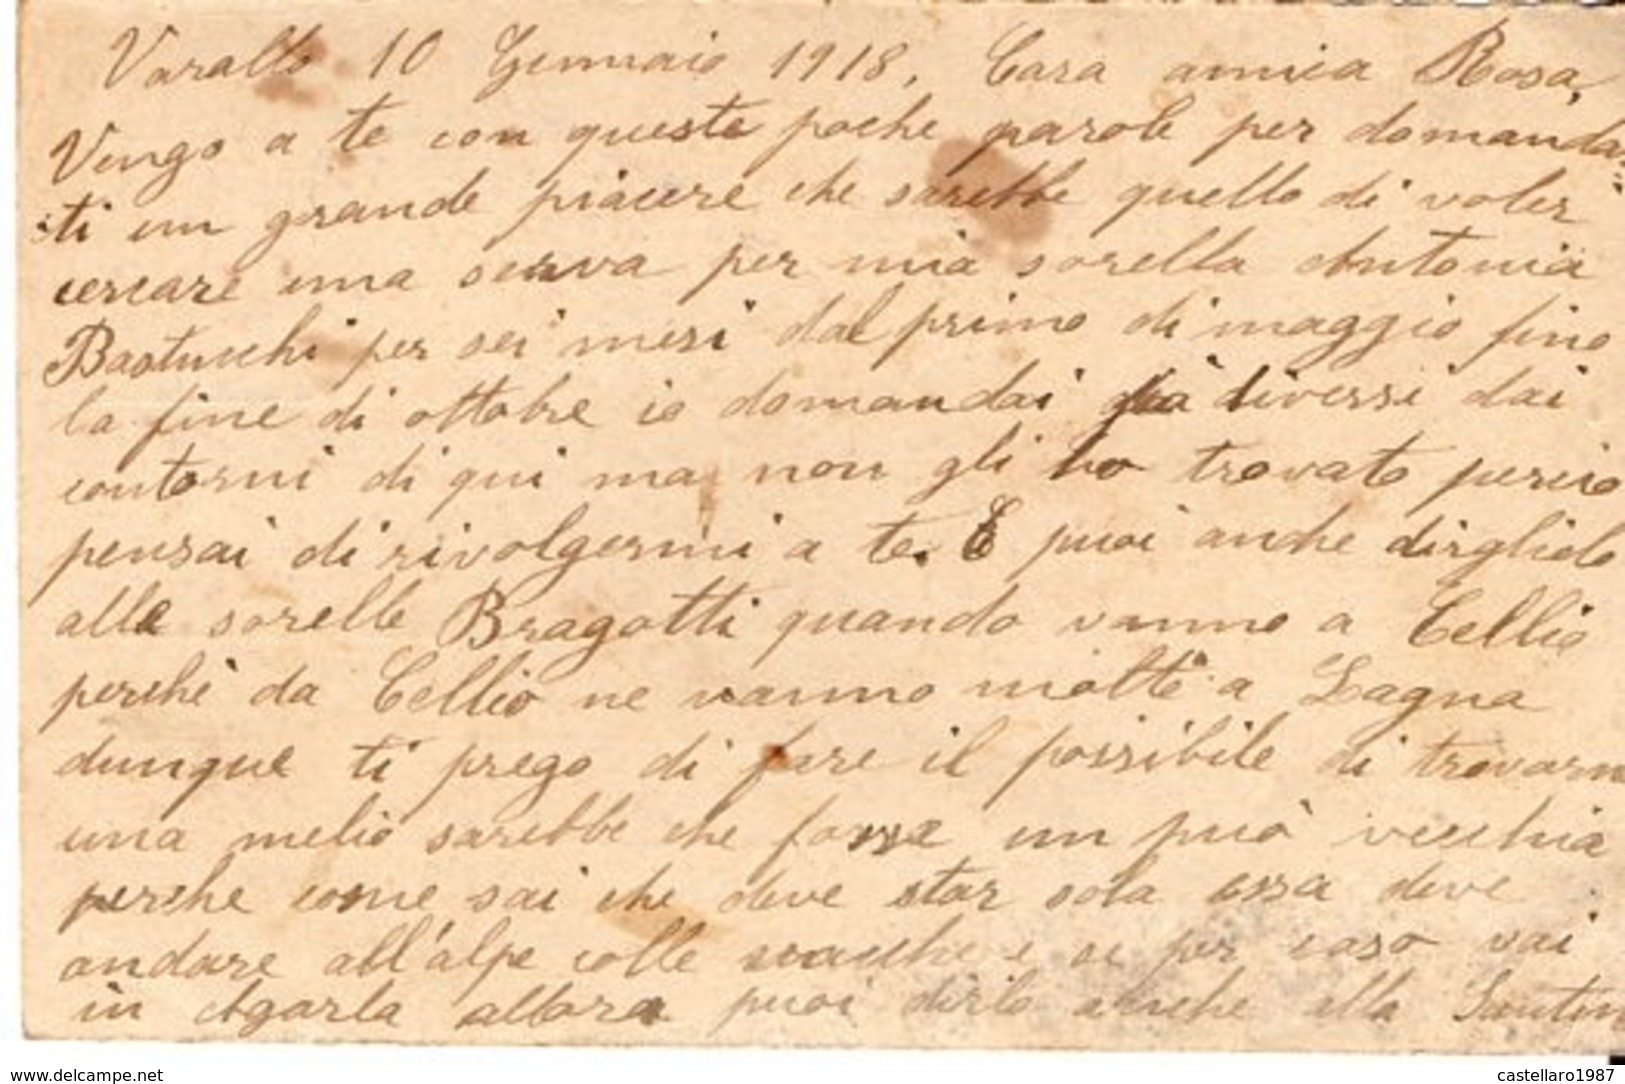 Varallo 10 Gennaio 1918, Cara amica Rosa,
Vengo a te con queste poche parole per domandar
ti un grande piacere che sarebbe quello di voler
cercare una serva per mia sorella Antonia
per sei mesi dal primo di maggio fino
la fine di ottobre io domandai già diversi dai
contorni di qui ma non gli ho trovato percio
pensai di rivolgermi a te. E puoi anche dirglielo
alle sorelle Bragotti quando vanno a Cellio
perchè da Cellio ne vanno molte a Zagna
dunque ti prego di fare il possibile di trovarm
una melio sarebbe che fosse un può vecchia
perche come sai che deve star sola essa deve
andare all'alpe colle vacche e se per caso vai
in Agarla allora puoi dirlo anche alla Santin
delcampe.net
castellaro1987